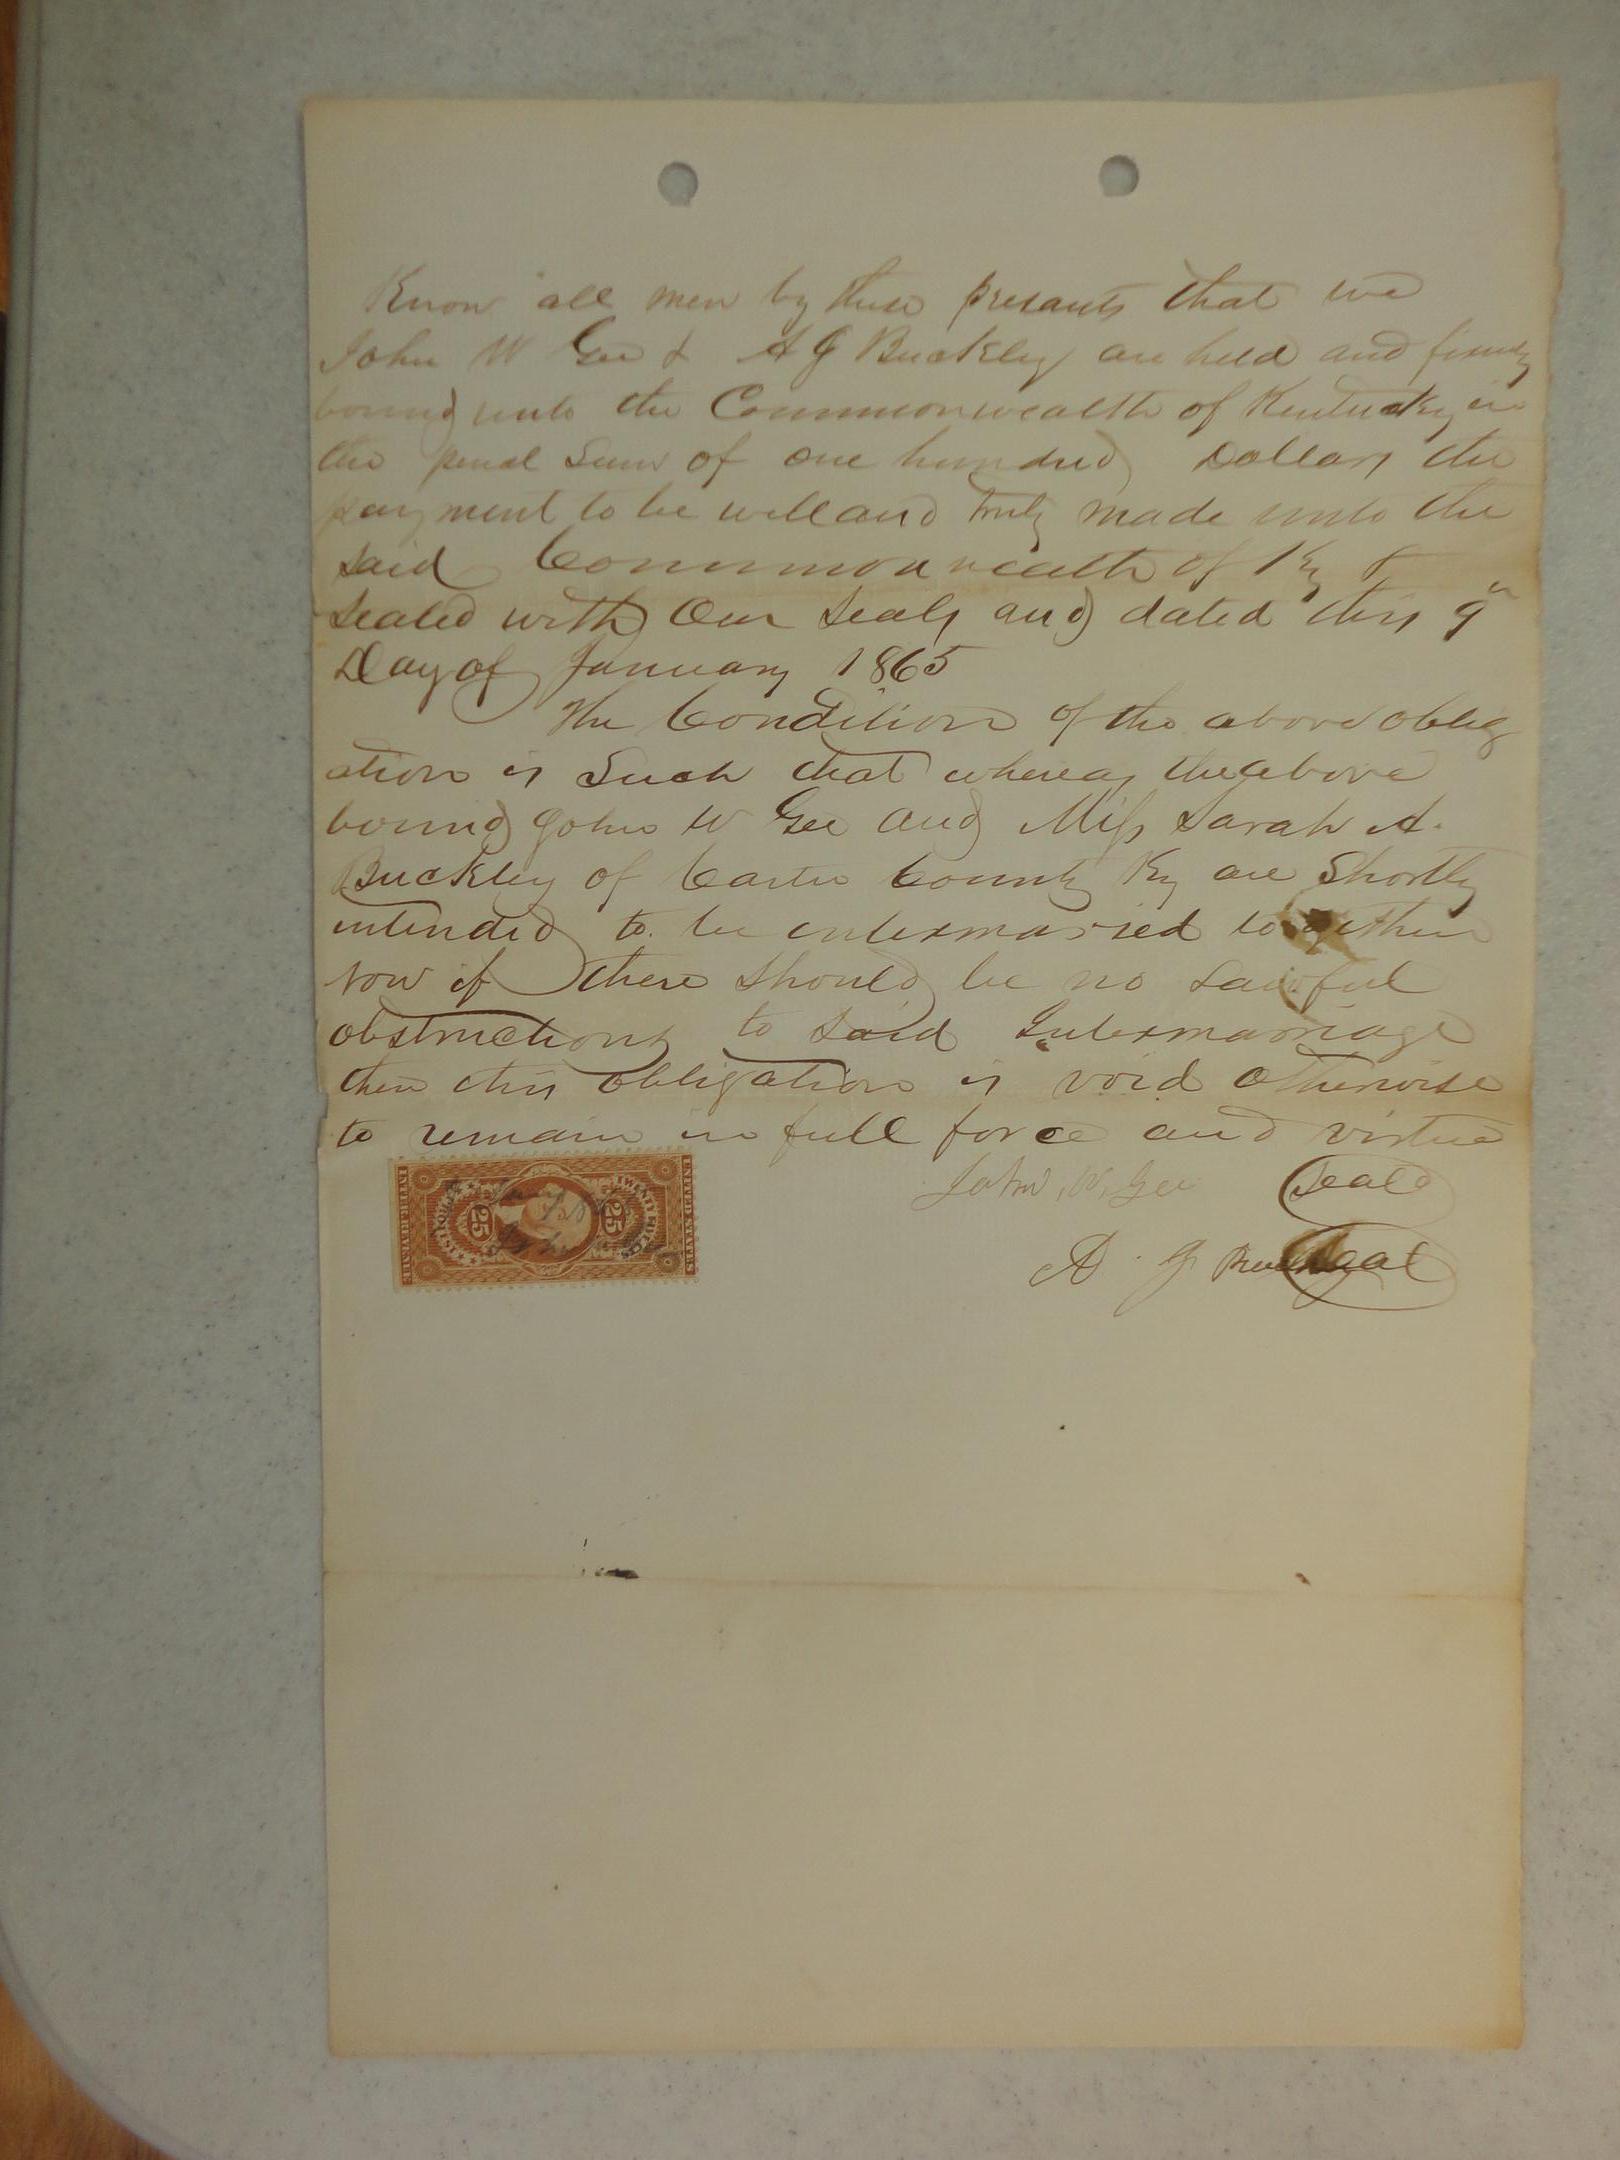 Know all men by these presants that we
John W Gee & A J Buckley are held and firmly
bound unto the Commonwealth of Kentucky in
the penal Sum of one hundred Dollars the
payment to be well and truly made unto the
said Commonwealth of Ky &
sealed with Our seals and dated this 9th
Day of January 1865
The Condition of the above oblig
ation is Such that whereas the above
bound John W Gee and Miss Sarah A.
Buckley of Carter County Ky are Shortly
intended to be intermarried together
now if there should be no lawful
obstructions to said Intermarriage
then this obligation is void otherwise
to remain in full force and virtue
John, W, Gee Seal
A. J Buckley Seal
INTER. REVENUE
25
25
TWENTY FIVE CTS
UNITED STATES